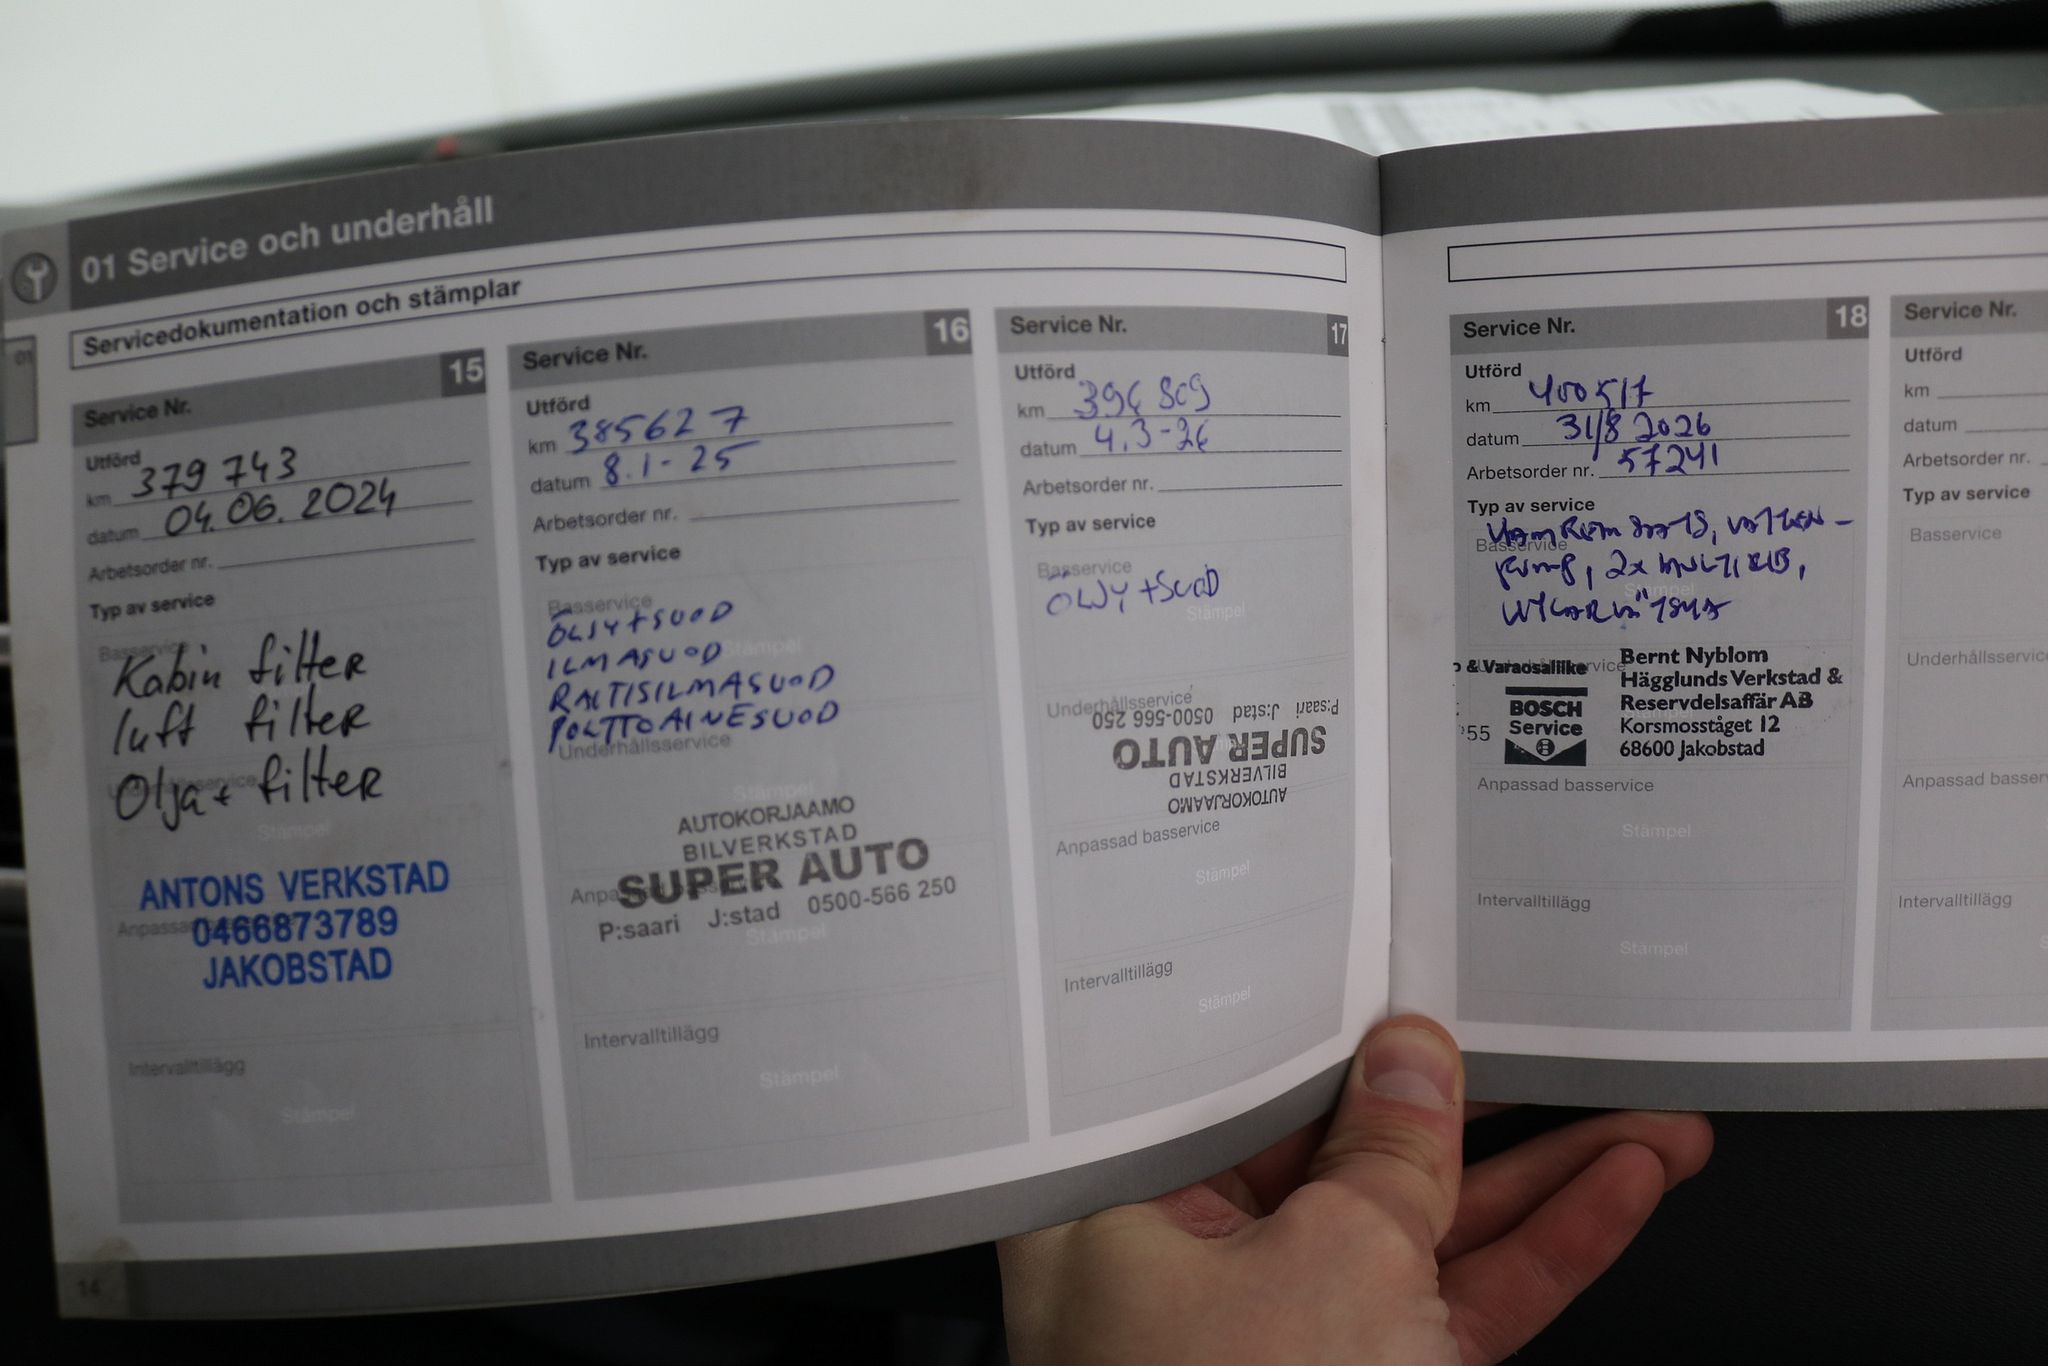 01 Service och underhåll
Servicedokumentation och stämplar
01
Service Nr. 15
Utförd
km 379 743
datum 04.06.2024
Arbetsorder nr.
Typ av service
Basservice
Kabin filter
luft filter
Underhållsservice
Olja + filter
Stämpel
ANTONS VERKSTAD
Anpassad basservice
0466873789
JAKOBSTAD
Intervalltillägg
Stämpel
14
Service Nr. 16
Utförd
km 385627
datum 8.1-25
Arbetsorder nr.
Typ av service
Basservice
ÖLJY+SUOD
Stämpel
ILMASUOD
RAITISILMASUOD
POLTTOAINESUOD
Underhållsservice
Stämpel
AUTOKORJAAMO
BILVERKSTAD
SUPER AUTO
P:saari J:stad 0500-566 250
Stämpel
Intervalltillägg
Stämpel
Service Nr. 17
Utförd
km
datum 4.3-26
Arbetsorder nr.
Typ av service
Basservice
ÖLJY+SUOD
Stämpel
Underhållsservice
AUTOKORJAAMO
BILVERKSTAD
SUPER AUTO
P:saari J:stad 0500-566 250
Anpassad basservice
Stämpel
Intervalltillägg
Stämpel
Service Nr. 18
Utförd
km 400517
datum 31/8 2026
Arbetsorder nr. 57241
Typ av service
Basservice
KAMREM SATS, VATTEN-
PUMP, 2x MULTIRIB,
Stämpel
& Varaosaliike
BOSCH
Service
Bernt Nyblom
Hägglunds Verkstad &
Reservdelsaffär AB
Korsmosståget 12
68600 Jakobstad
Anpassad basservice
Stämpel
Intervalltillägg
Stämpel
Service Nr.
Utförd
km
datum
Arbetsorder nr.
Typ av service
Basservice
Underhållsservice
Anpassad basservice
Intervalltillägg